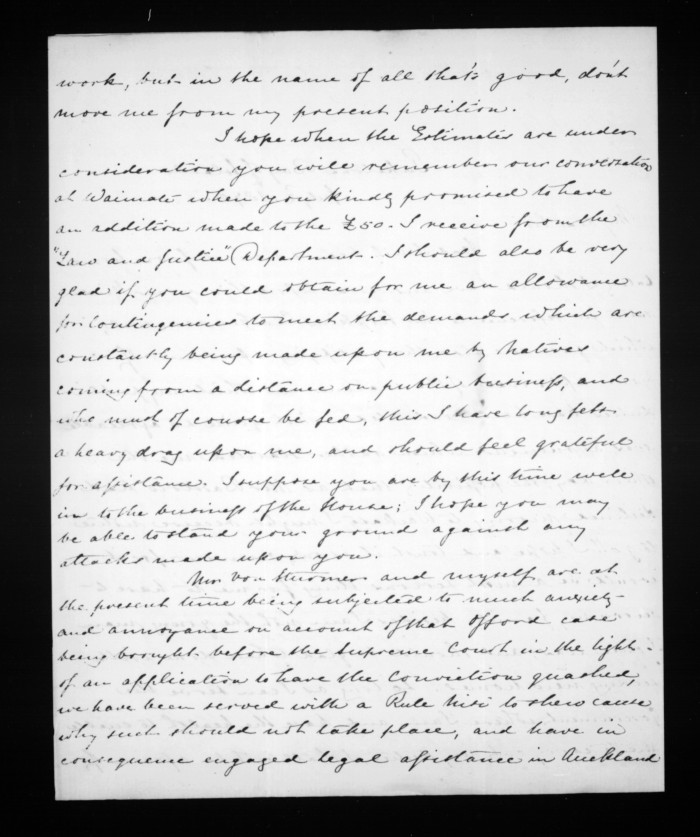 work, but in the name of all that's good, don't
move me from my present position.
I hope when the Estimates are under
consideration you will remember our conversation
at Waimate when you kindly promised to have
an addition made to the £50. I receive from the
"Law and Justice" Department. I should also be very
glad if you could obtain for me an allowance
for Contingencies to meet the demands which are
constantly being made upon me by Natives
coming from a distance on public business, and
who must of course be fed, this I have long felt
a heavy drag upon me, and should feel grateful
for assistance. I suppose you are by this time well
in to the business of the House; I hope you may
be able to stand your ground against any
attacks made upon you.
Mr. Von Sturmer and myself are at
the present time being subjected to much anxiety
and annoyance on account of that Offord case
being brought before the Supreme Court in the light
of an application to have the Conviction quashed,
we have been served with a Rule Nisi to shew cause
why such should not take place, and have in
consequence engaged legal assistance in Auckland